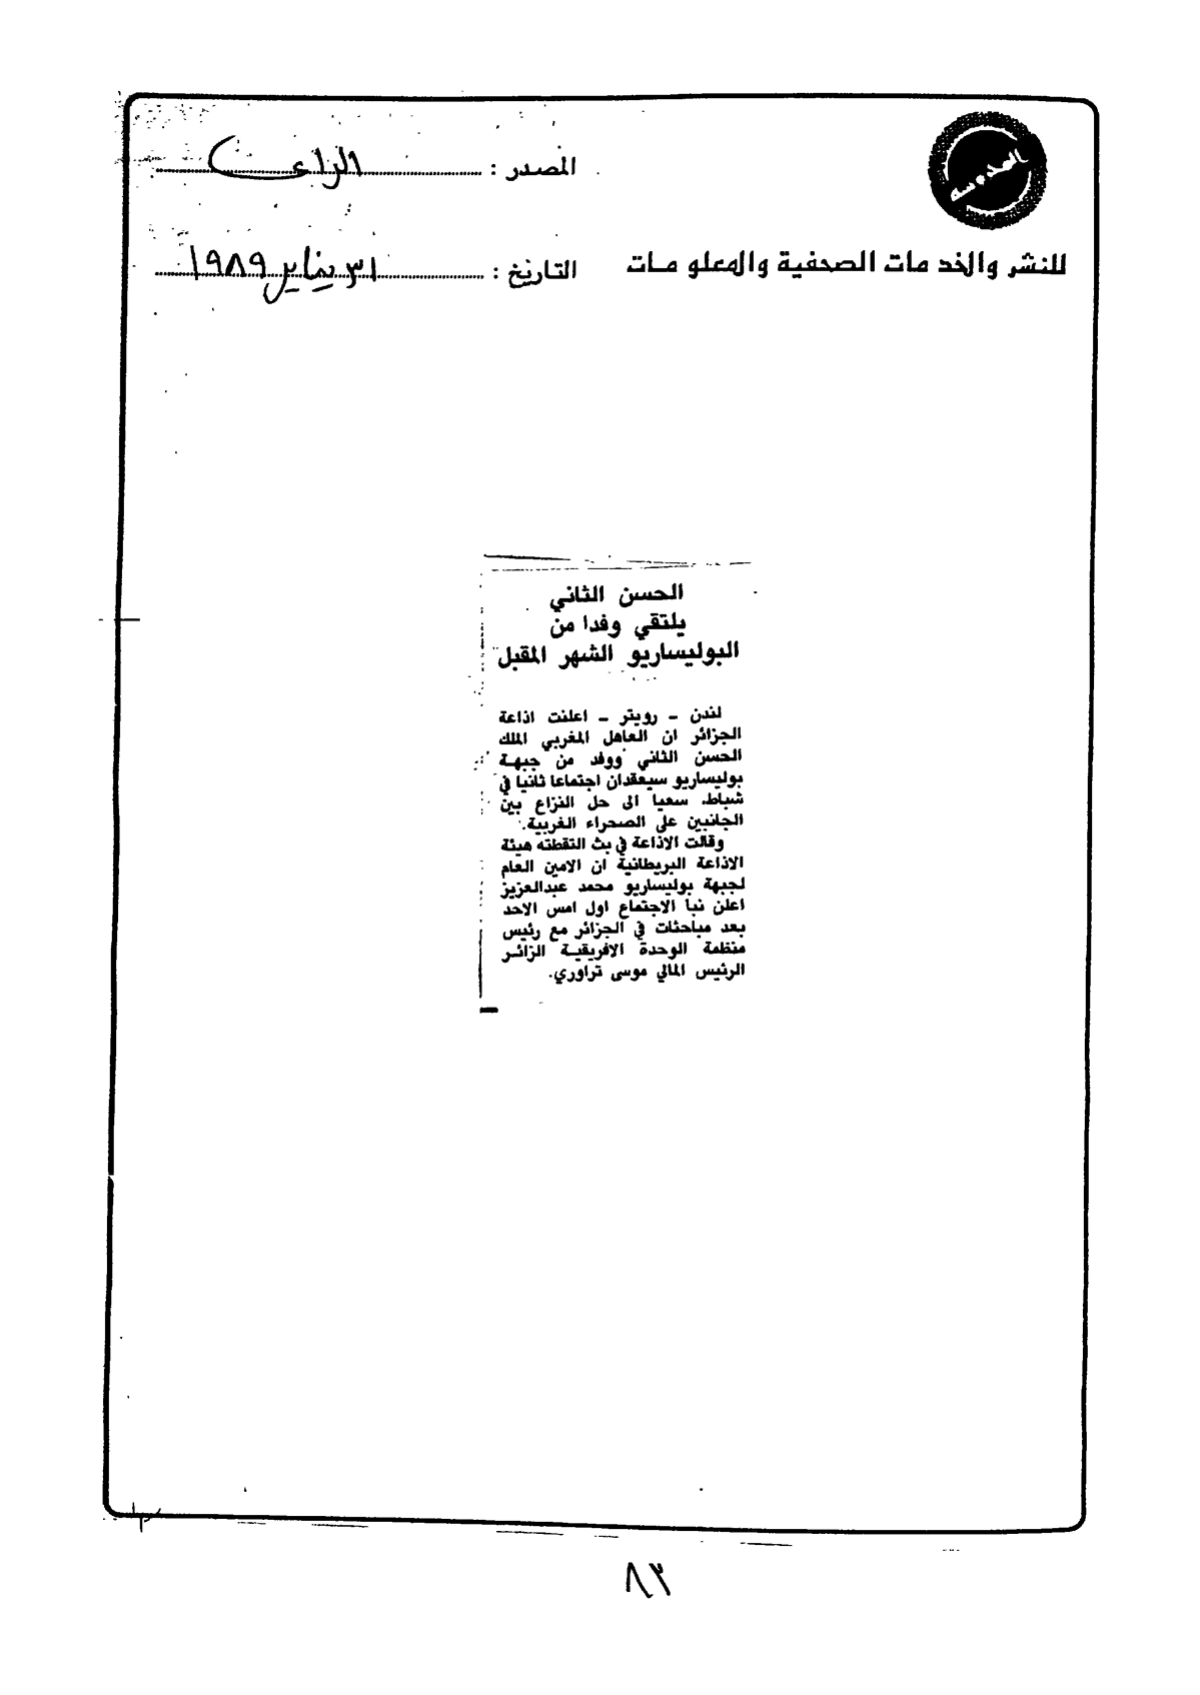 المصدر : الرأي
للنشر والخدمات الصحفية والمعلومات
التاريخ : ٣١ يناير ١٩٨٩
الحسن الثاني
يلتقي وفدا من
البوليساريو الشهر المقبل
لندن - رويتر - اعلنت اذاعة
الجزائر ان العاهل المغربي الملك
الحسن الثاني ووفد من جبهة
بوليساريو سيعقدان اجتماعا ثانيا في
شباط. سعيا الى حل النزاع بين
الجانبين على الصحراء الغربية.
وقالت الاذاعة في بث التقطته هيئة
الاذاعة البريطانية ان الامين العام
لجبهة بوليساريو محمد عبدالعزيز
اعلن نبا الاجتماع اول امس الاحد
بعد مباحثات في الجزائر مع رئيس
منظمة الوحدة الافريقية الزائر
الرئيس المالي موسى تراوري.
٨٣